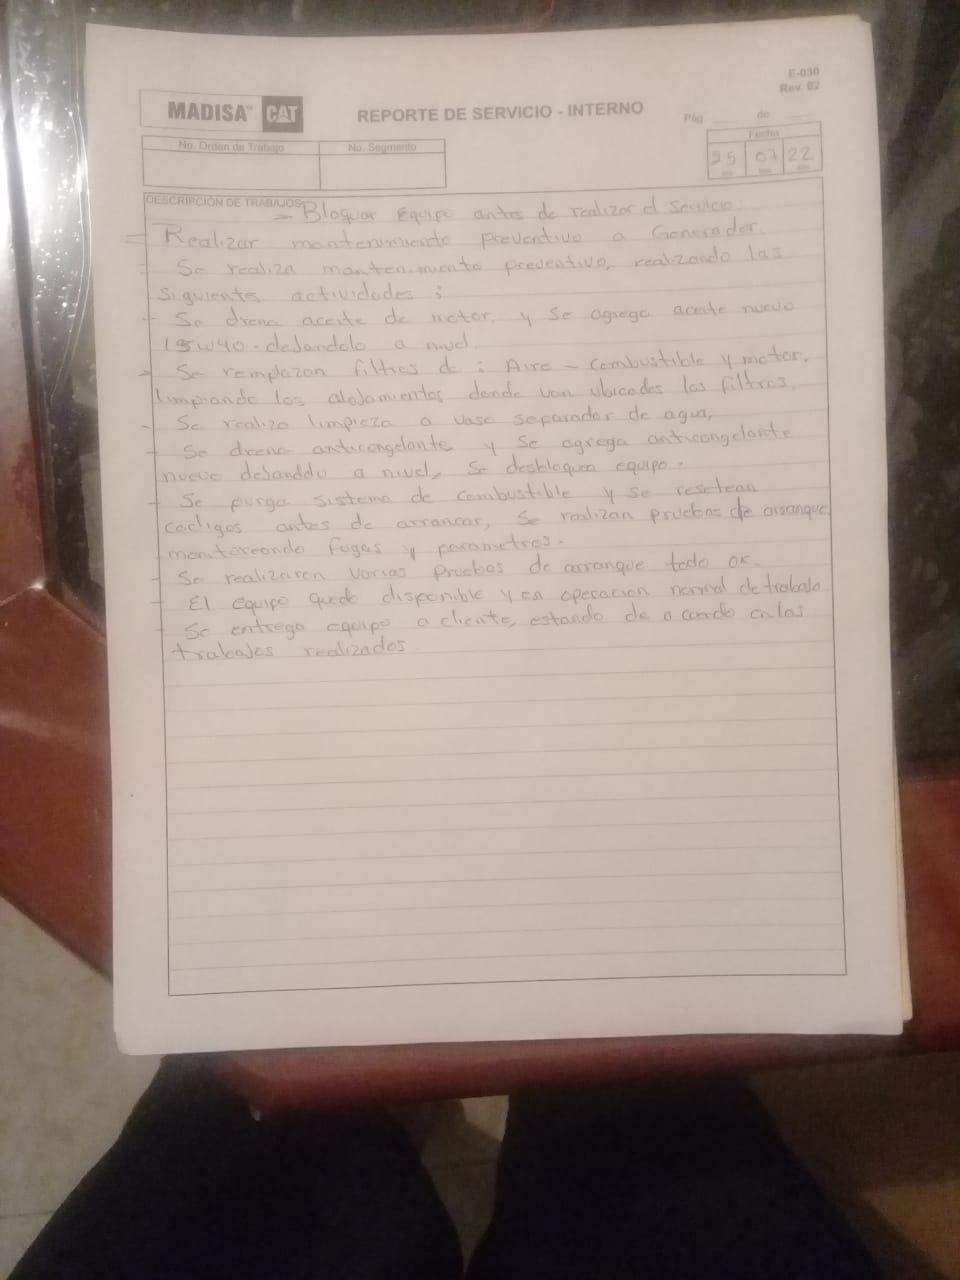 E-030
Rev. 02
MADISA CAT
REPORTE DE SERVICIO - INTERNO
Pág ____ de ____
No. Orden de Trabajo No. Segmento
Fecha
25 07 22
DESCRIPCIÓN DE TRABAJOS:
- Bloquar Equipo antes de realizar el servicio.
- Realizar mantenimiento preventivo a Generador.
- Se realiza mantenimiento preventivo, realizando las
siguientes actividades :
- Se drena aceite de motor, y se agrega aceite nuevo
15W40 - dejandolo a nivel.
- Se remplazan filtros de : Aire - Combustible y motor.
limpiando los alojamientos donde van ubicados los filtros.
- Se realiza limpieza a vaso separador de agua,
- Se drena anticongelante y se agrega anticongelante
nuevo dejanddo a nivel, Se desbloquea equipo.
- Se purga sistema de combustible y se resetean
codigos antes de arrancar, Se realizan pruebas de arranque
monitoreando fugas y parametros.
- Se realizaron varias pruebas de arranque todo ok.
- El equipo quedo disponible y en operacion normal de trabajo
- Se entrega equipo a cliente, estando de a cuerdo en los
trabajos realizados.